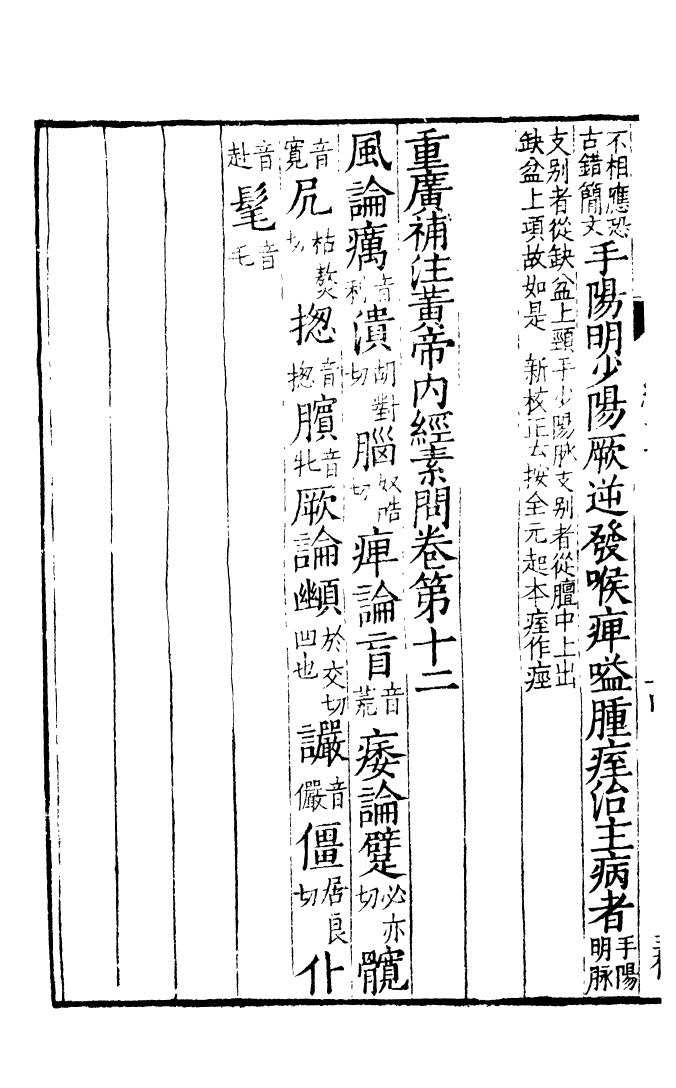 不相應恐古錯簡文手陽明少陽厥逆發喉痹嗌腫痓治主病者手陽明脉
支别者從缺盆上頸手少陽脉支别者從膻中上出
缺盆上項故如是　新校正云按全元起本痓作痙
重廣補注黃帝內經素問卷第十二
風論癘音利潰胡對切腦奴皓切痹論肓音荒痿論躄必亦切髖
音寬尻枯熬切揔音揔臏音牝厥論㓜頁於交切凹也讝音儼僵居良切仆
音赴髦音毛